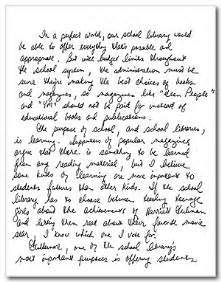 In a perfect world, our school library would
be able to offer everything that's possible and
appropriate. But with budget limits throughout
the school system, the administration must be
sure they're making the best choices of books
and magazines, so magazines like "Teen People"
and "YM" should not be paid for instead of
educational books and publications.
The purpose of school, and school libraries,
is learning. Supporters of popular magazines
argue that there is something to be learned
from any reading material, but I believe
some kinds of learning are more important to
students' futures than other kinds. If the school
library has to choose between teaching teenage
girls about the achievements of Harriet Tubman
and letting them read about their favorite movie
star, I know which one I vote for.
Furthermore, one of the school library's
most important purposes is offering students